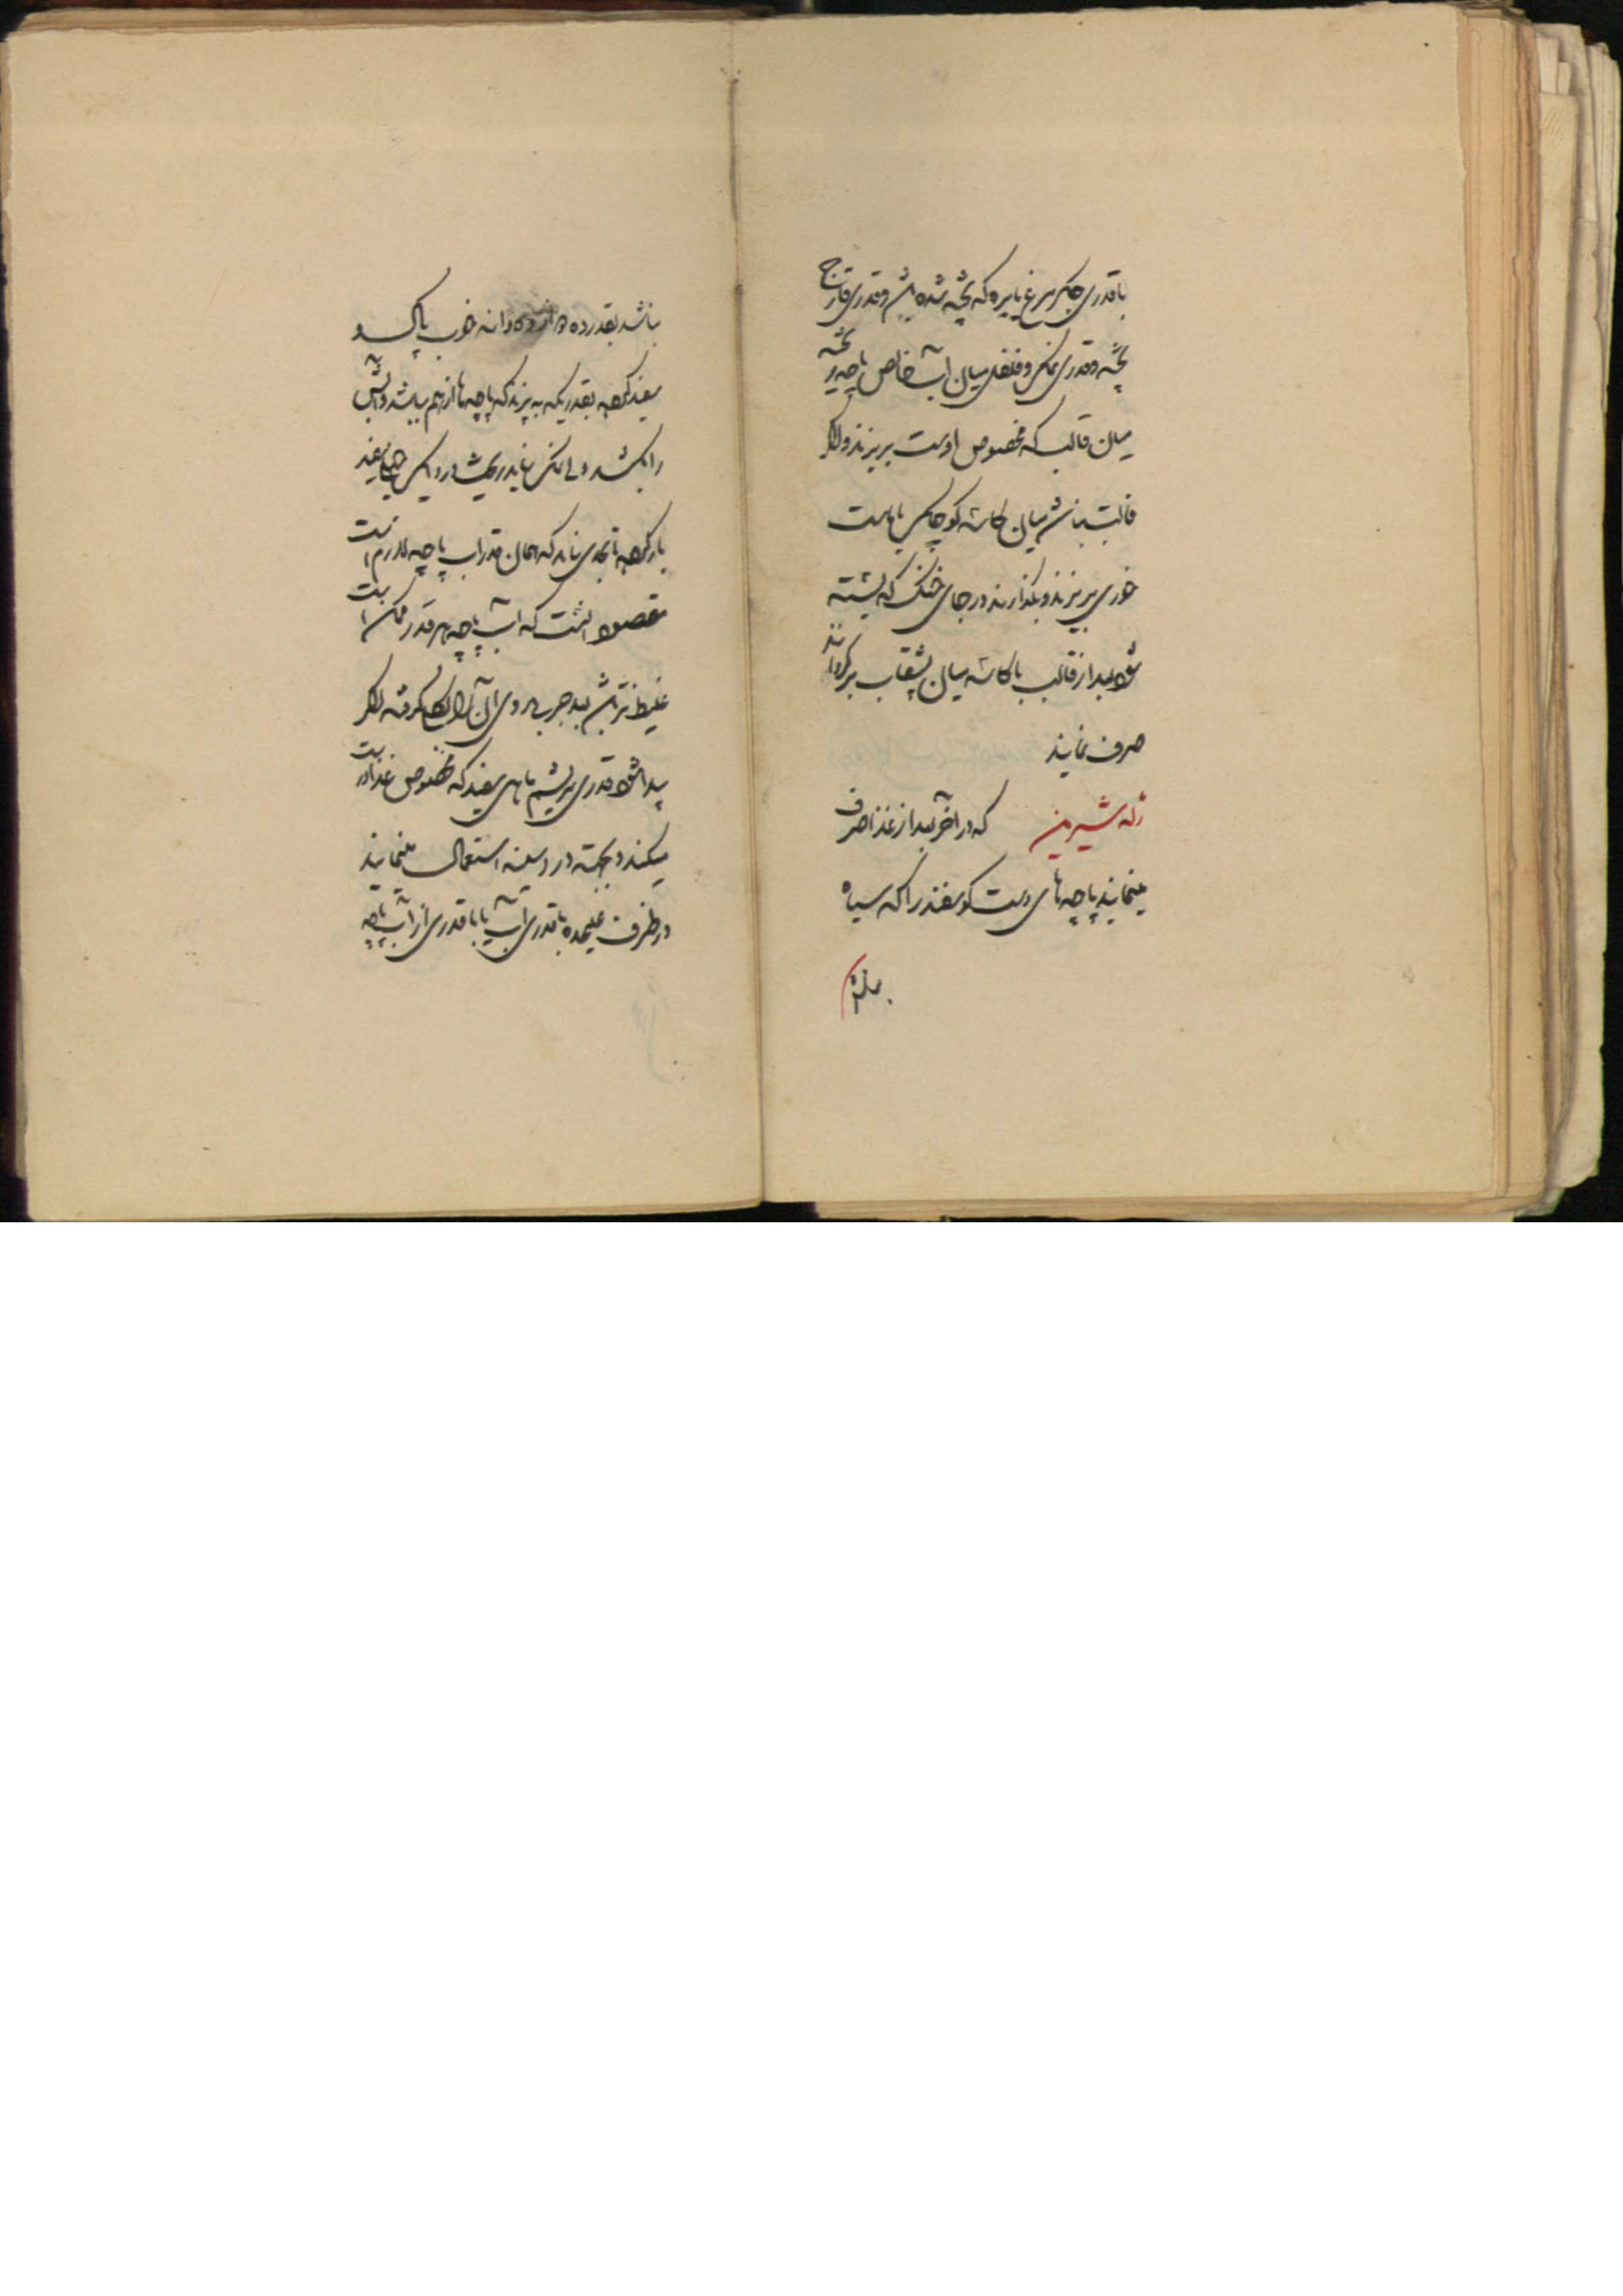 با قدری جگر مرغ یا بره که پخته شده باشد و قدری قارچ
پخته و قدری نمک و فلفل میان آب خالص پاچه پخته
میان قالب که مخصوص اوست بریزند و اگر
قالب نباشد میان کاسه کوچک یا ماست
خوری بریزند و بگذارند در جای خنک که بسته
شود بعد از قالب یا کاسه میان بشقاب برگردانند
صرف نمایند
ژله شیرین که در آخر بعد از غذا صرف
مینمایند پاچه های دست گوسفند را که سیاه
نباشد بقدر ده دانه خوب پاک و
سفید کرده بقدریکه به پزند که پاچه ها از هم بپاشد و آبش
را بکشد ولی نمک نباید ریخت در دیگ سفید
بار کرده تا بحدی نماند که همان قدر آب پاچه لازم است
مقصود اینست که آب پاچه هر قدر ممکن است
غلیظ تر باشد بعد چربی روی آن را گرفته اگر
پیدا شود قدری سریشم ماهی سفید که مخصوص غذا درست
میکنند و بسته در روسیه استعمال مینمایند
در ظرف علیحده با قدری آب یا با قدری از آب پاچه